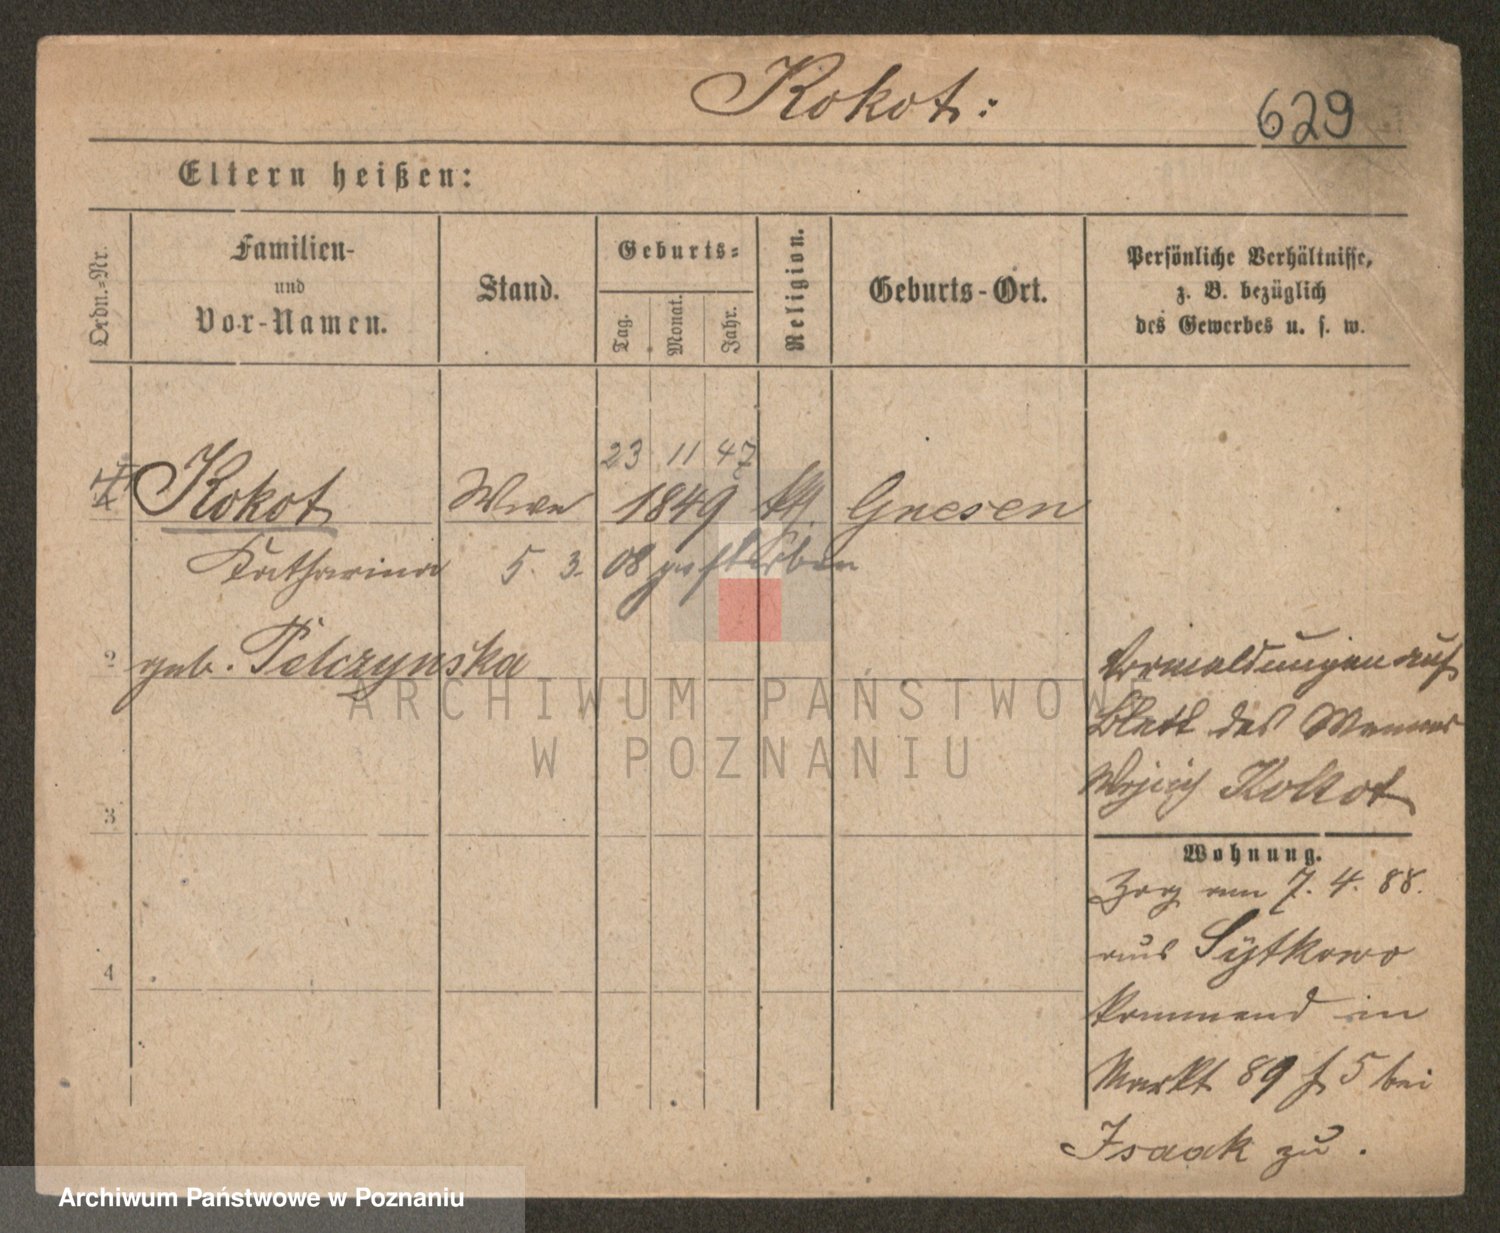 Kokot:
629
Eltern heißen:
Ordn.-Nr.
Familien-
und
Vor-Namen.
Stand.
Geburts-
Tag.
Monat.
Jahr.
Religion.
Geburts-Ort.
Persönliche Verhältnisse,
z. B. bezüglich
des Gewerbes u. s. w.
23 11 47
Kokot Wwe 1849 kth. Gnesen
Katharina 5. 3. 08 gestorben
2 geb. Pelczynska
Vermeldungen auf
Blatt des Mannes
Kokot
3
Wohnung.
Zog am 7. 4. 88.
aus Sytkowo
kommend in
4
Markt 89 f 5 bei
Isaak zu.
ARCHIWUM PAŃSTWOWE
W POZNANIU
Archiwum Państwowe w Poznaniu